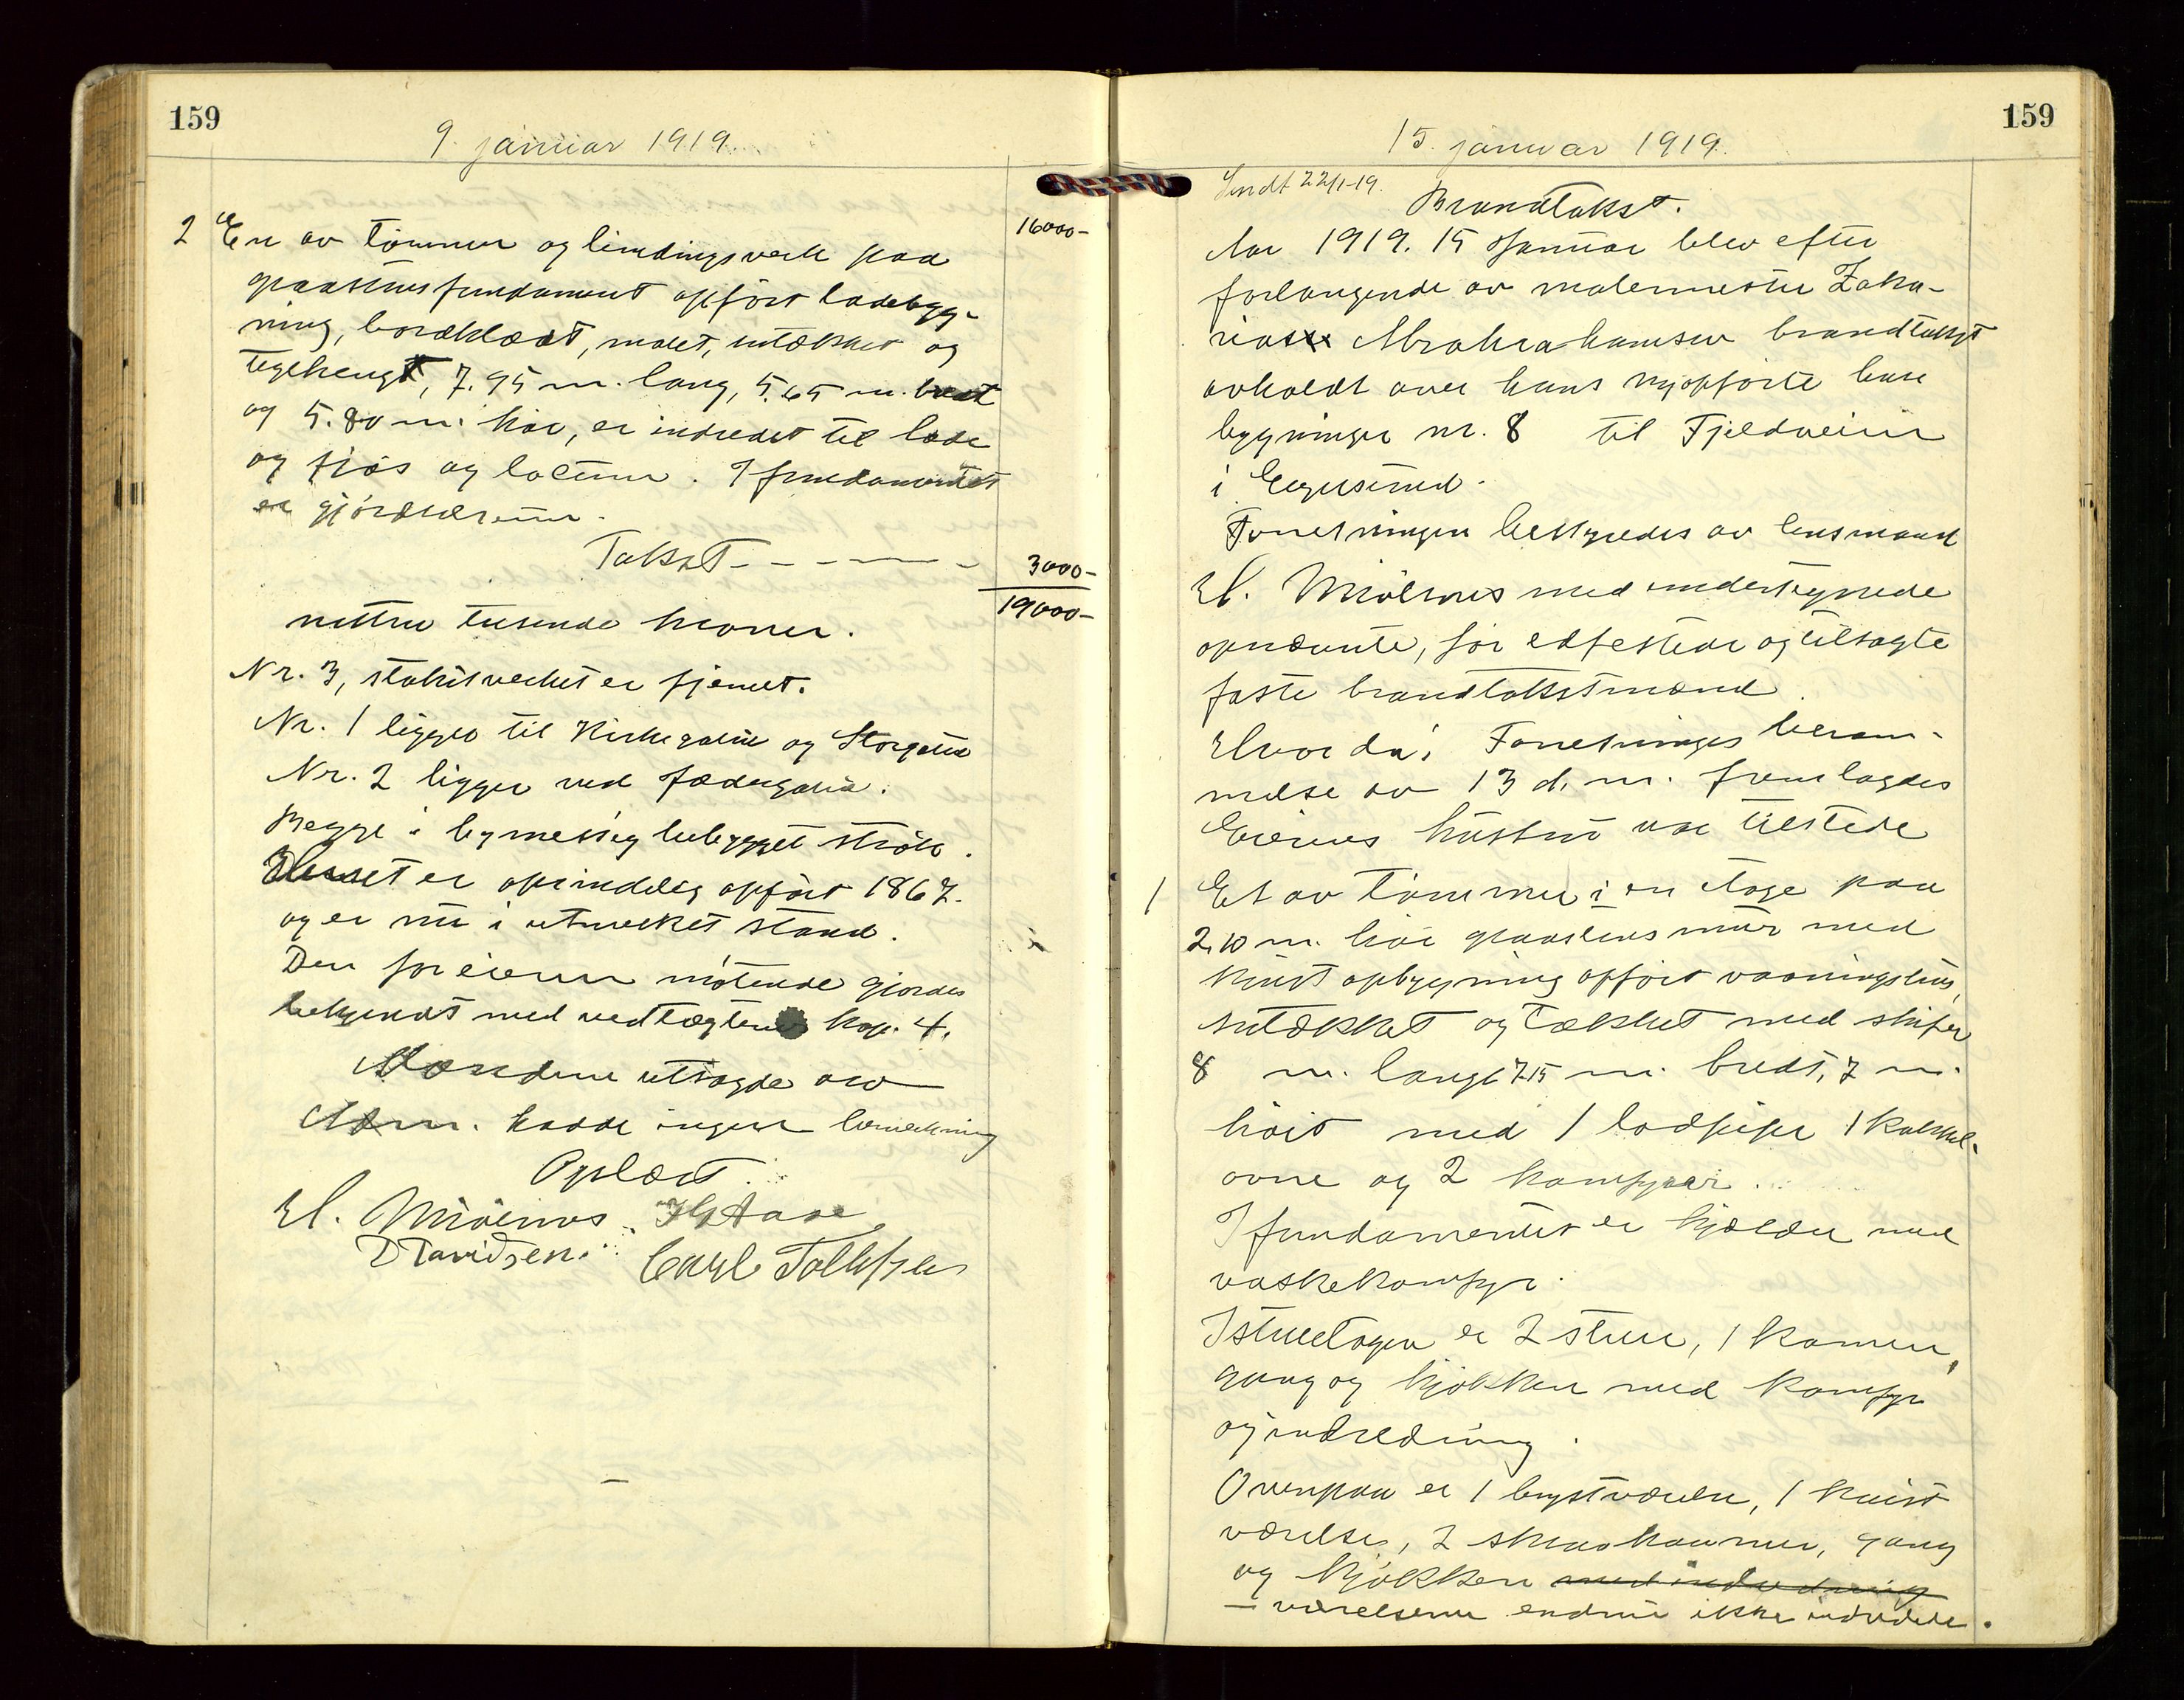 159
9. januar 1919.
16000-
2 En av tømmer og bindingsverk paa
graastensfundament opført ladebyg-
ning, bordklædt, malet, utækket og
teglhengt, 7.95 m. lang, 5.65 m. bredt
og 5.80 m. høi, er indredet til lade
og fjøs og locum. I fundamentet
er gjødselrum.
Takst - - - - - 3000-
19000-
nitten tusende kroner.
Nr. 3, stakitverket er fjernet.
Nr. 1 ligger til Kirkegaten og Storgaten
Nr. 2 ligger ved Fædregaten.
Begge i bymessig bebygget strøk.
Huset er oprindelig opført 1867.
og er nu i utmerket stand.
Den for eieren møtende gjordes
bekjendt med vedtægtens kap. 4.
Mændene utsagde av
Adm. hadde ingen bemerkning
Oplæst.
H. Mjølsnes
D Davidsen. Carl Tollefsen
159
15. januar 1919.
Sendt 22/1-19.
Brandtakst.
Aar 1919. 15 Januar blev efter
forlangende av malermester Zaka-
rias Abrahamsen brandtakst
avholdt over hans nyopførte hus
bygninger nr. 8 til Fjeldveien
i Egersund.
Forretningen bestyredes av lensmand
H. Mjølsnes med undertegnede
opnævnte, før edfestede og tilsagte
faste brandtakstmænd.
Hvorda: Forretninges beram-
melse av 13 d. m. fremlagdes
Eierens hustru var tilstede
1 Et av tømmer i en etage paa
2.10 m. høi graastensmur med
kvist opbygning opført vaaningshus,
utækket og tækket med skifer
8 m. langt 7.15 m. bredt, 7 m.
høit med 1 lodpipe 1 kakkel-
ovne og 2 komfyrer.
I fundamentet er kjælder med
vaskekomfyr.
I stueetagen er 2 stuer, 1 kamer,
gang og kjøkken med komfyr
og indredning.
Ovenpaa er 1 brystværelse, 1 kvist
værelse, 2 skraakammer, gang
og kjøkken med indredning
- værelserne endnu ikke indredede.